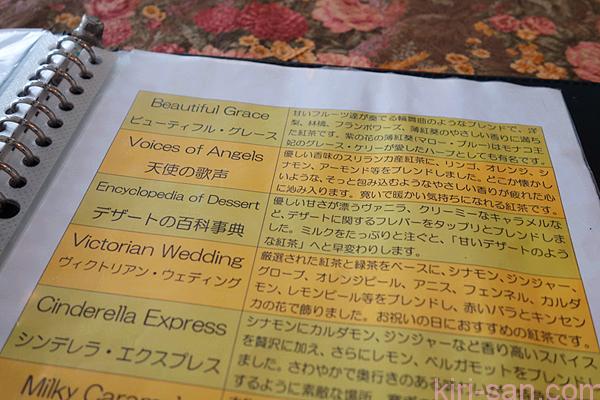 Beautiful Grace
ビューティフル・グレース
甘いフルーツ達が奏でる輪舞曲のようなブレンドで、洋
梨、林檎、フランボワーズ、薄紅葵のやさしい香りに満ち
た紅茶です。紫の花の薄紅葵(マロー・ブルー)はモナコ王
妃のグレース・ケリーが愛したハーブとしても有名です。
Voices of Angels
天使の歌声
優しい香味のスリランカ産紅茶に、リンゴ、オレンジ、シ
ナモン、アーモンド等をブレンドしました。どこか懐かし
いような、そっと包み込むようなやさしい香りが疲れた心
に沁み入ります。寛いで暖かい気持ちになれる紅茶です。
Encyclopedia of Dessert
デザートの百科事典
優しい甘さが漂うヴァニラ、クリーミーなキャラメルな
ど、デザートに関するフレバーをタップリとブレンドしま
した。ミルクをたっぷりと注ぐと、「甘いデザートのよう
な紅茶」へと早変わりします。
Victorian Wedding
ヴィクトリアン・ウェディング
厳選された紅茶と緑茶をベースに、シナモン、ジンジャー、
グローブ、オレンジピール、アニス、フェンネル、カルダ
モン、レモンピール等をブレンドし、赤いバラとキンセン
カの花で飾りました。お祝いの日におすすめの紅茶です。
Cinderella Express
シンデレラ・エクスプレス
シナモンにカルダモン、ジンジャーなど香り高いスパイス
を贅沢に加え、さらにレモン、ベルガモットをブレンド
ました。さわやかで奥行きのある
するように素敵な場所
Milky Caramel
kiri-san.com